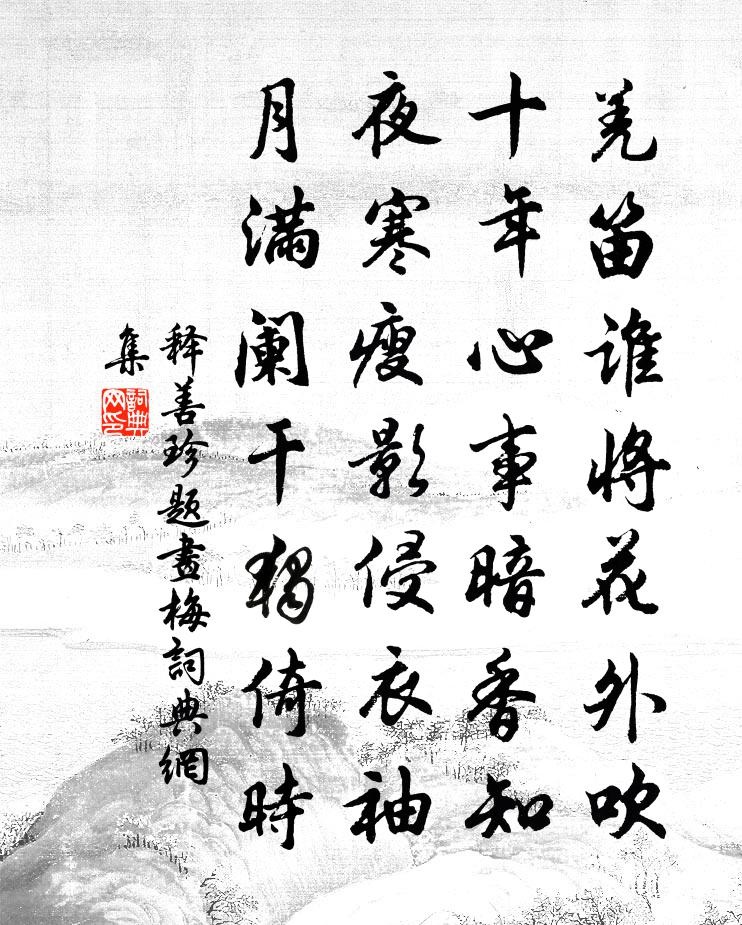 羌笛谁将花外吹
十年心事暗香知
夜寒瘦影侵衣袖
月满阑干独倚时
释善珍题画梅词典网
集
詞典
网印